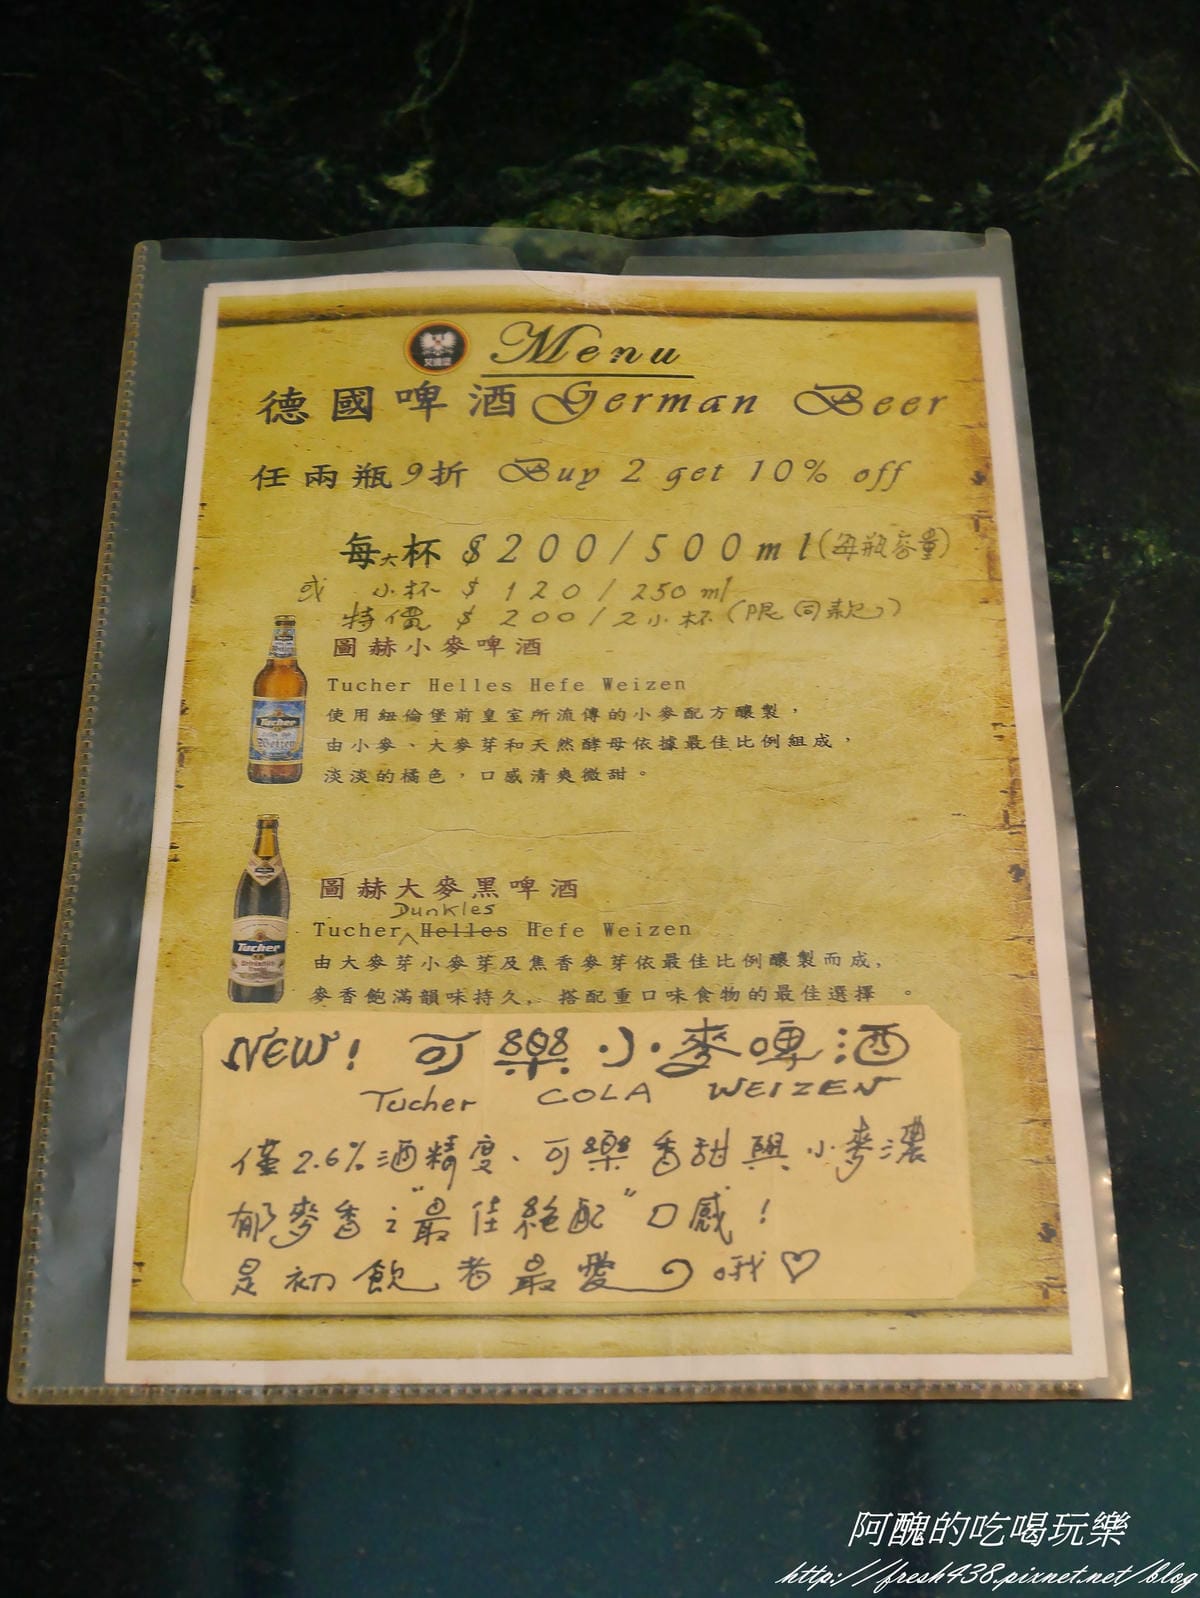 Menu
德國啤酒 German Beer
任兩瓶9折 Buy 2 get 10% off
每大杯 $200/500ml(每瓶容量)
或 小杯 $120/250ml
特價 $200/2小杯(限同款)
圖赫小麥啤酒
Tucher Helles Hefe Weizen
使用紐倫堡前皇室所流傳的小麥配方釀製，
由小麥、大麥芽和天然酵母依據最佳比例組成，
淡淡的橘色，口感清爽微甜。
Tucher
Weizen
圖赫大麥黑啤酒
Dunkles
Tucher Helles Hefe Weizen
由大麥芽小麥芽及焦香麥芽依最佳比例釀製而成,
麥香飽滿韻味持久, 搭配重口味食物的最佳選擇 。
Tucher
NEW! 可樂小麥啤酒
Tucher COLA WEIZEN
僅2.6%酒精度、可樂香甜與小麥濃
郁麥香之"最佳絕配"口感!
是初飲者最愛哦♡
阿醜的吃喝玩樂
http://fresh438.pixnet.net/blog